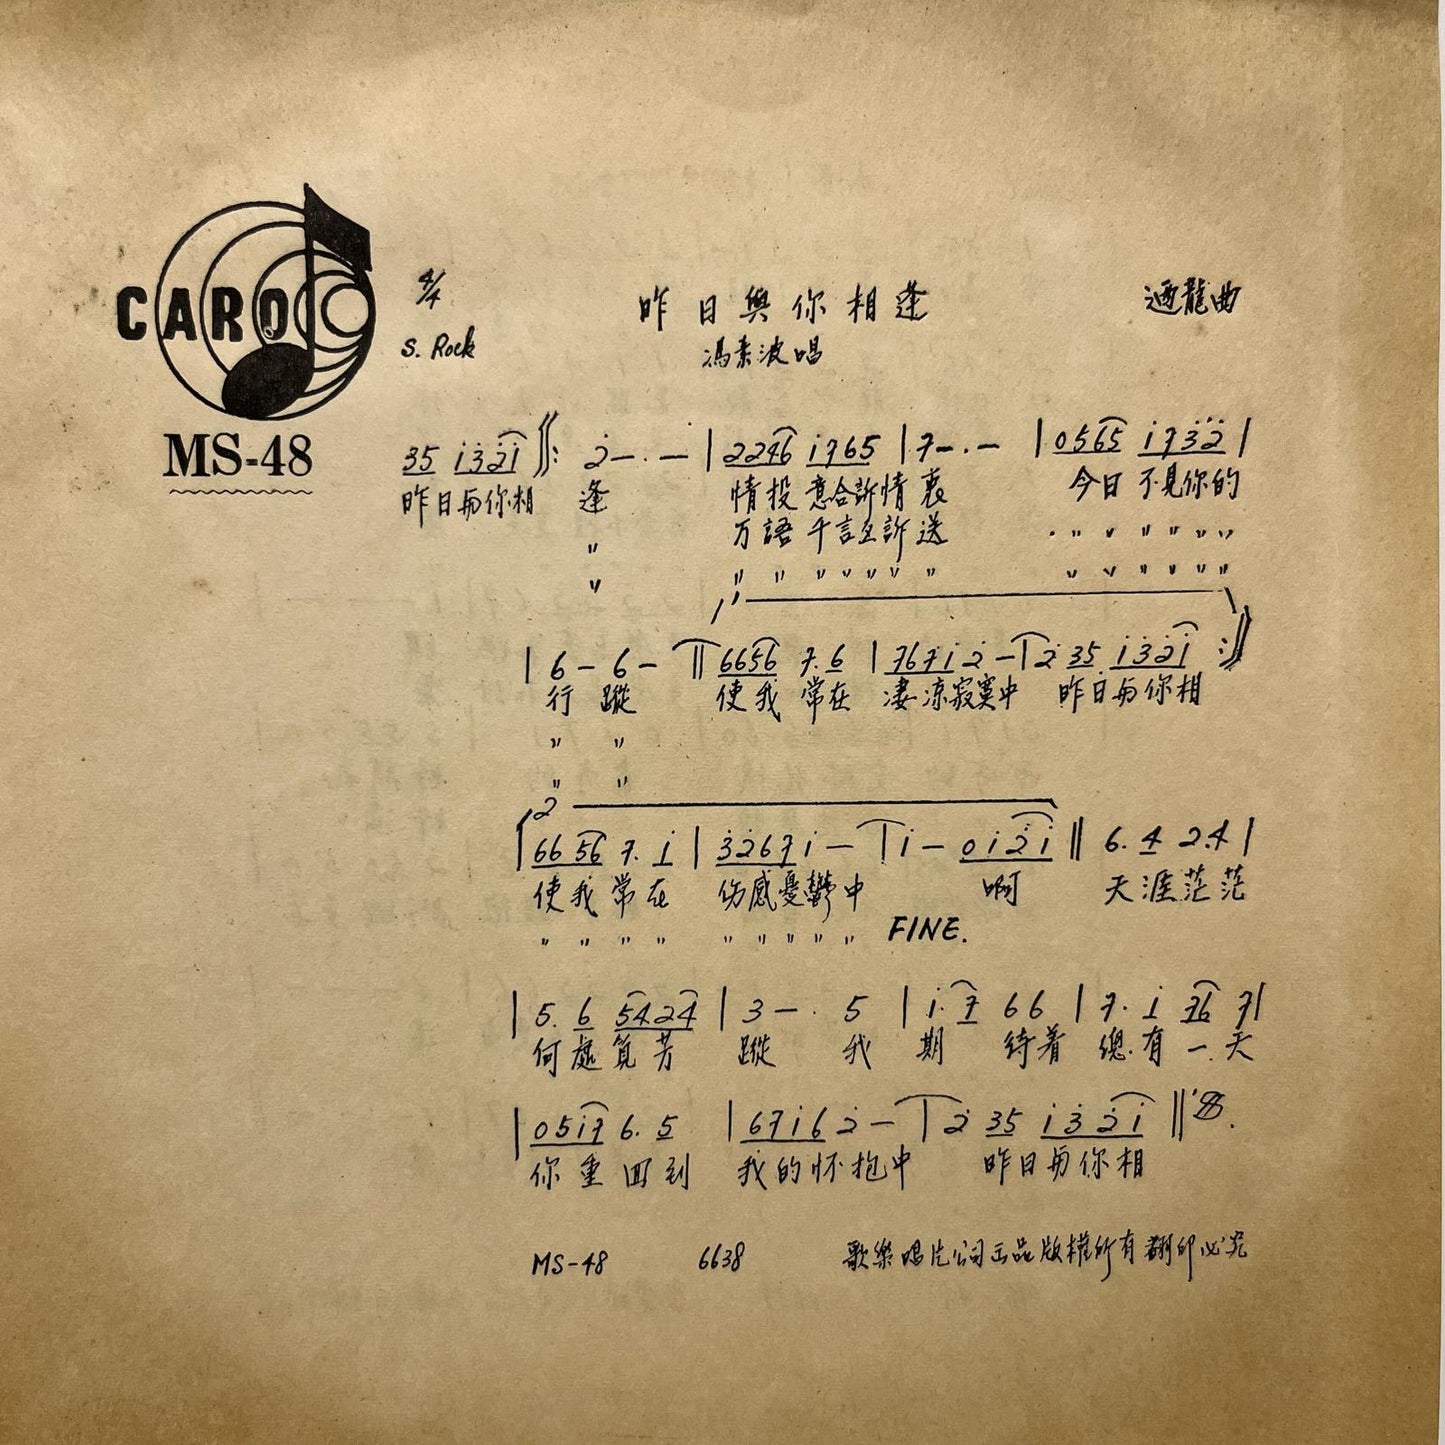 CARO
MS-48
4/4
S. Rock
昨日與你相逢
馮素波唱
迺龍曲
35 i32i ‖: 2 — · — | 2246 i765 | 7 — · — | 0565 i732 |
昨日与你相 逢 情投意合訴情衷 今日不見你的
〃 万語千言互訴送 〃 〃 〃 〃 〃 〃
〃 〃 〃 〃 〃 〃 〃 〃 〃 〃 〃 〃 〃 〃
1
| 6 — 6 — ‖ 6656 7. 6 | 7671 2 — | 2 35 i32i :‖
行蹤 使我常在 凄凉寂寞中 昨日与你相
〃 〃
〃 〃
2
| 66 56 7. i | 3267 i — | i — 0i2i ‖ 6. 4 2.4 |
使我常在 伤感憂鬱中 啊 天涯茫茫
〃 〃 〃 〃 〃 〃 〃 〃 〃 FINE.
| 5. 6 5424 | 3 — · 5 | i. 7 6 6 | 7. i 76 7 |
何處覓芳 蹤 我 期 待着 總有一天
| 05i7 6. 5 | 67i6 2 — | 2 35 i3 2i ‖
你重回到 我的怀抱中 昨日与你相
MS-48 6638 歌樂唱片公司出品版權所有翻印必究